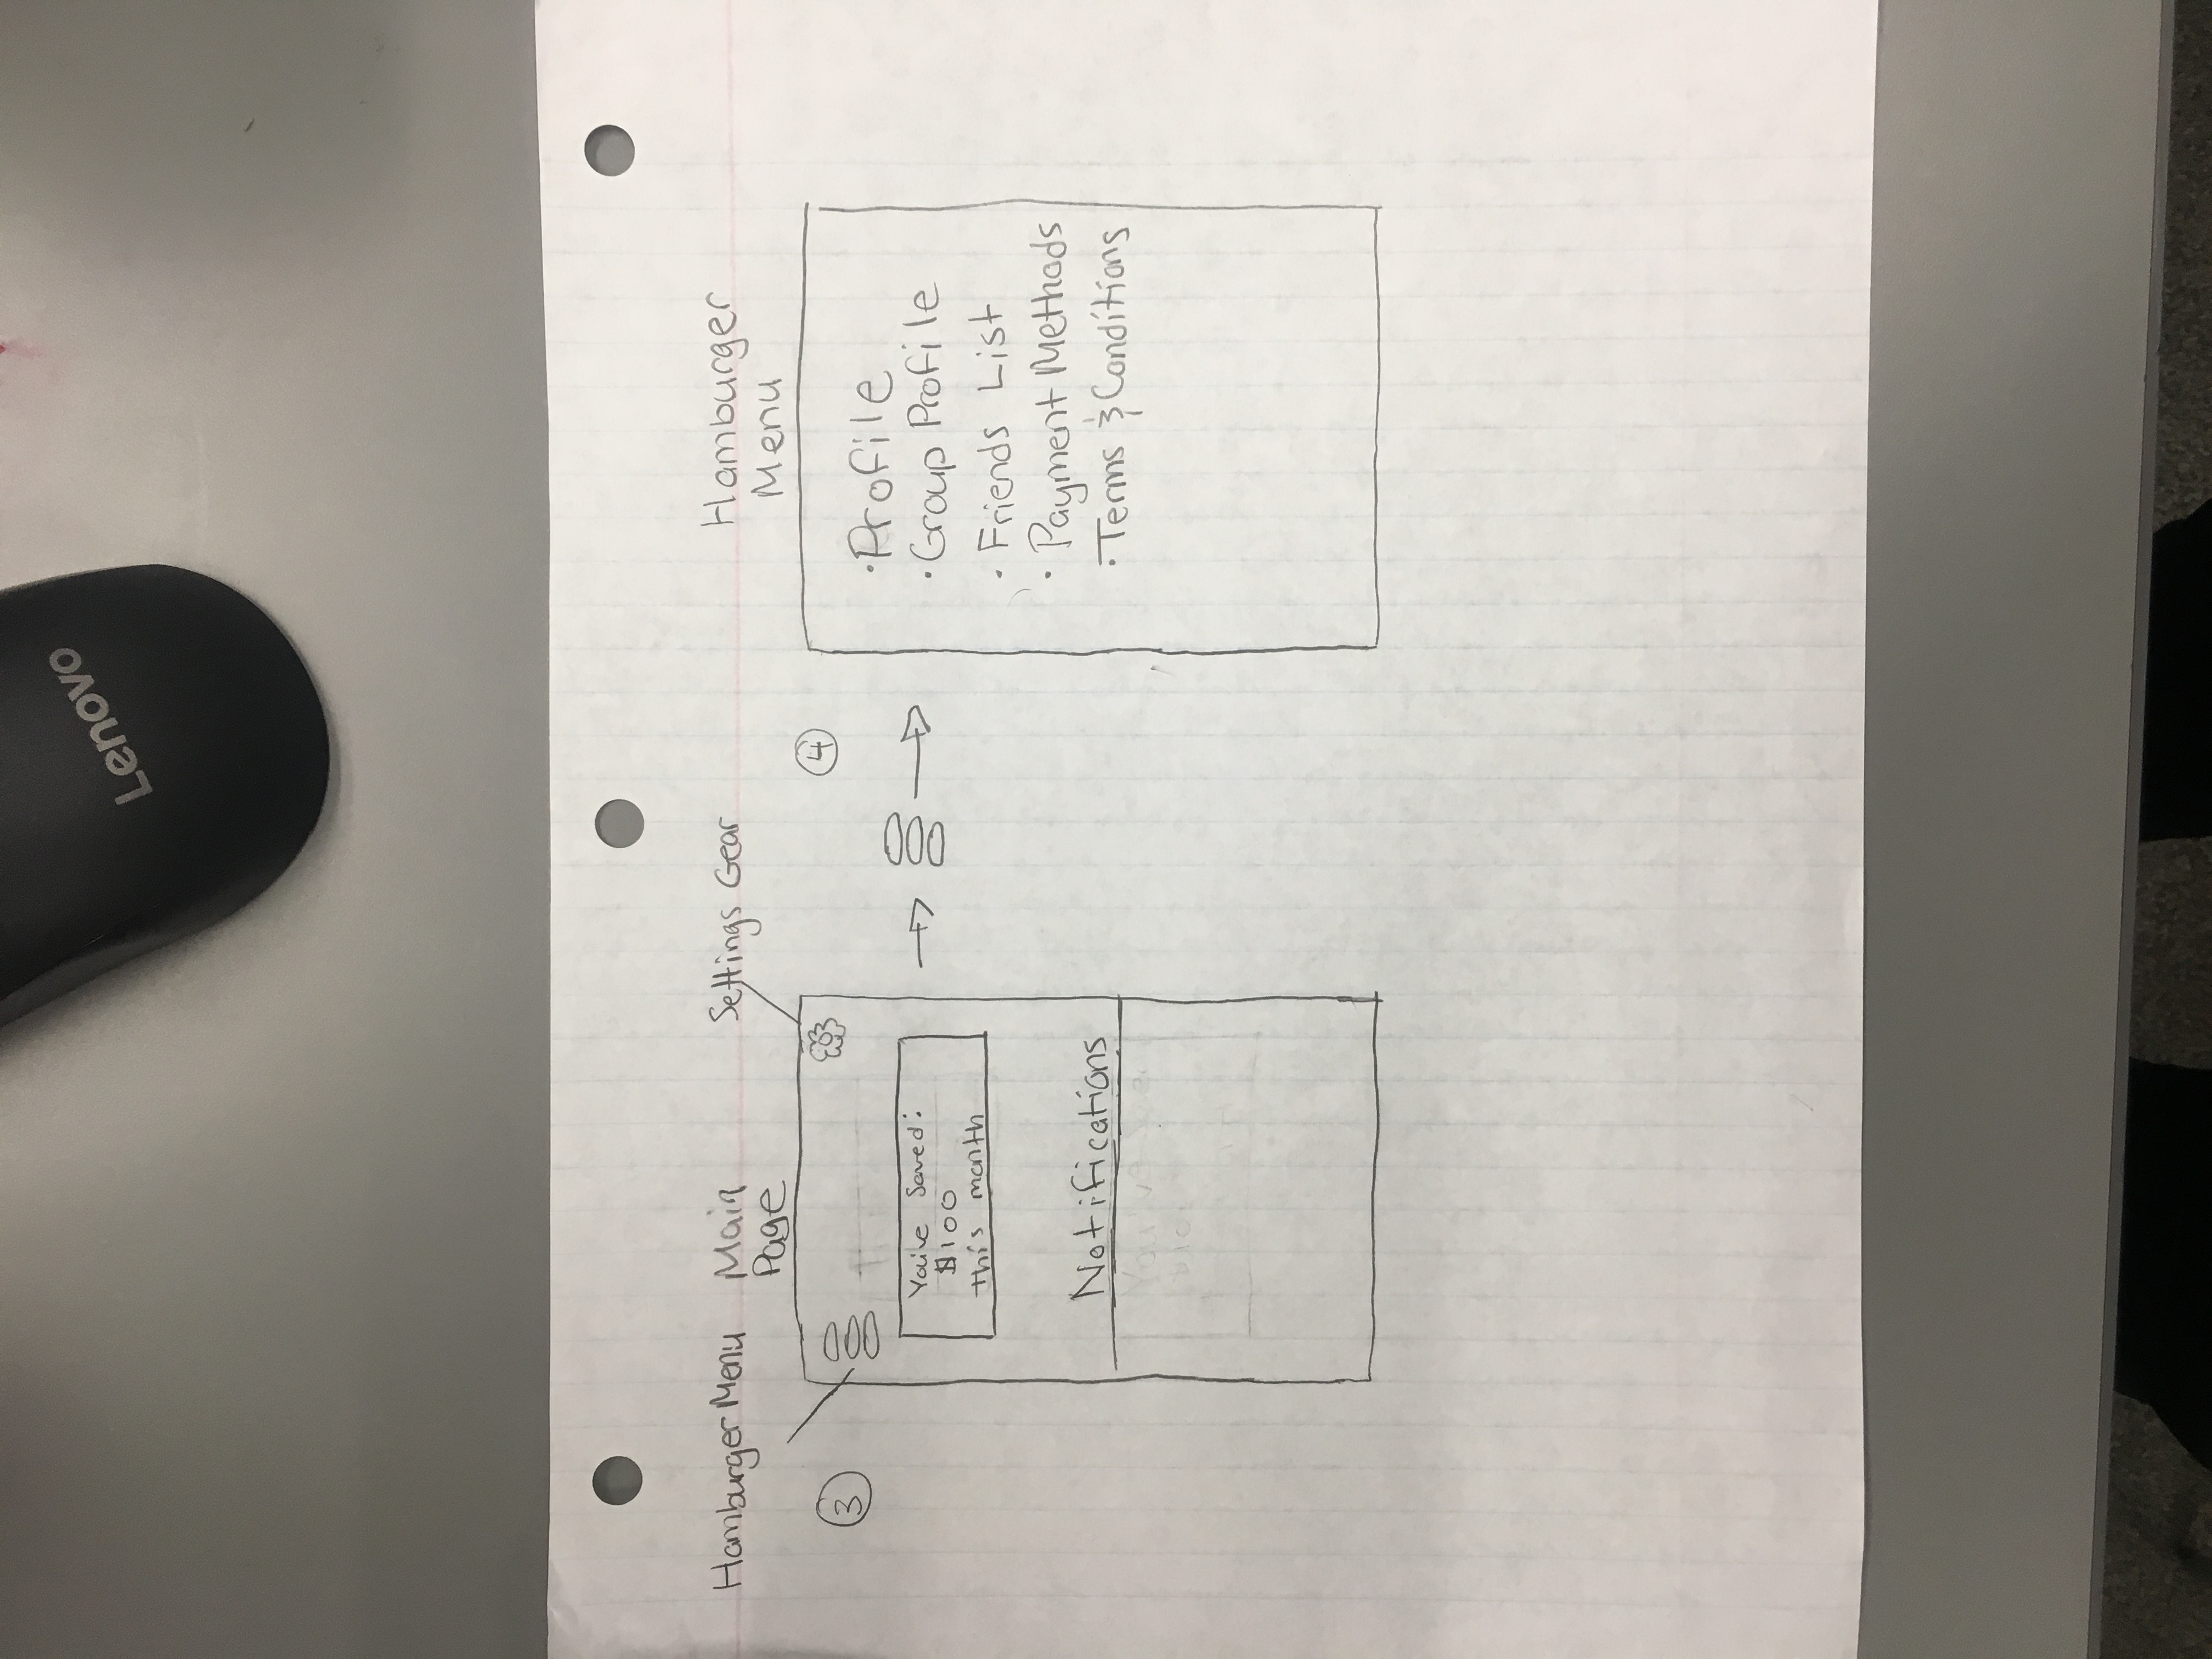 Lenovo
Hamburger Menu
Main
Page
Settings Gear
3
You've Saved:
$100
this month
Notifications
4
Hamburger
Menu
·Profile
·Group Profile
· Friends List
· Payment Methods
·Terms & Conditions